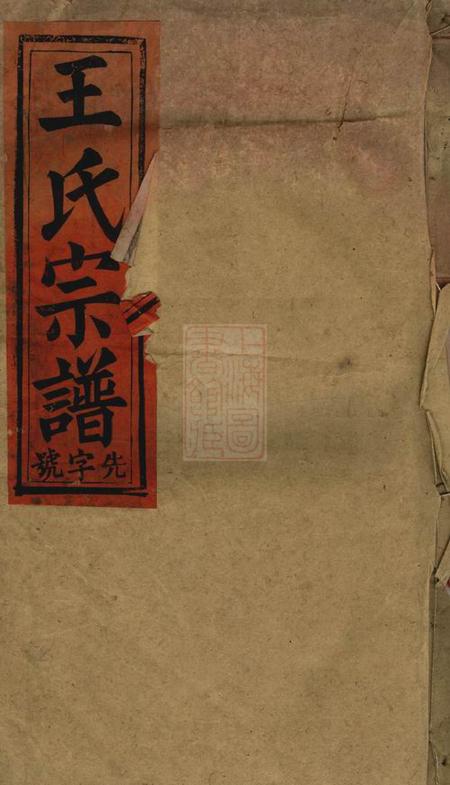 王氏宗譜
先字號
上海圖書館藏